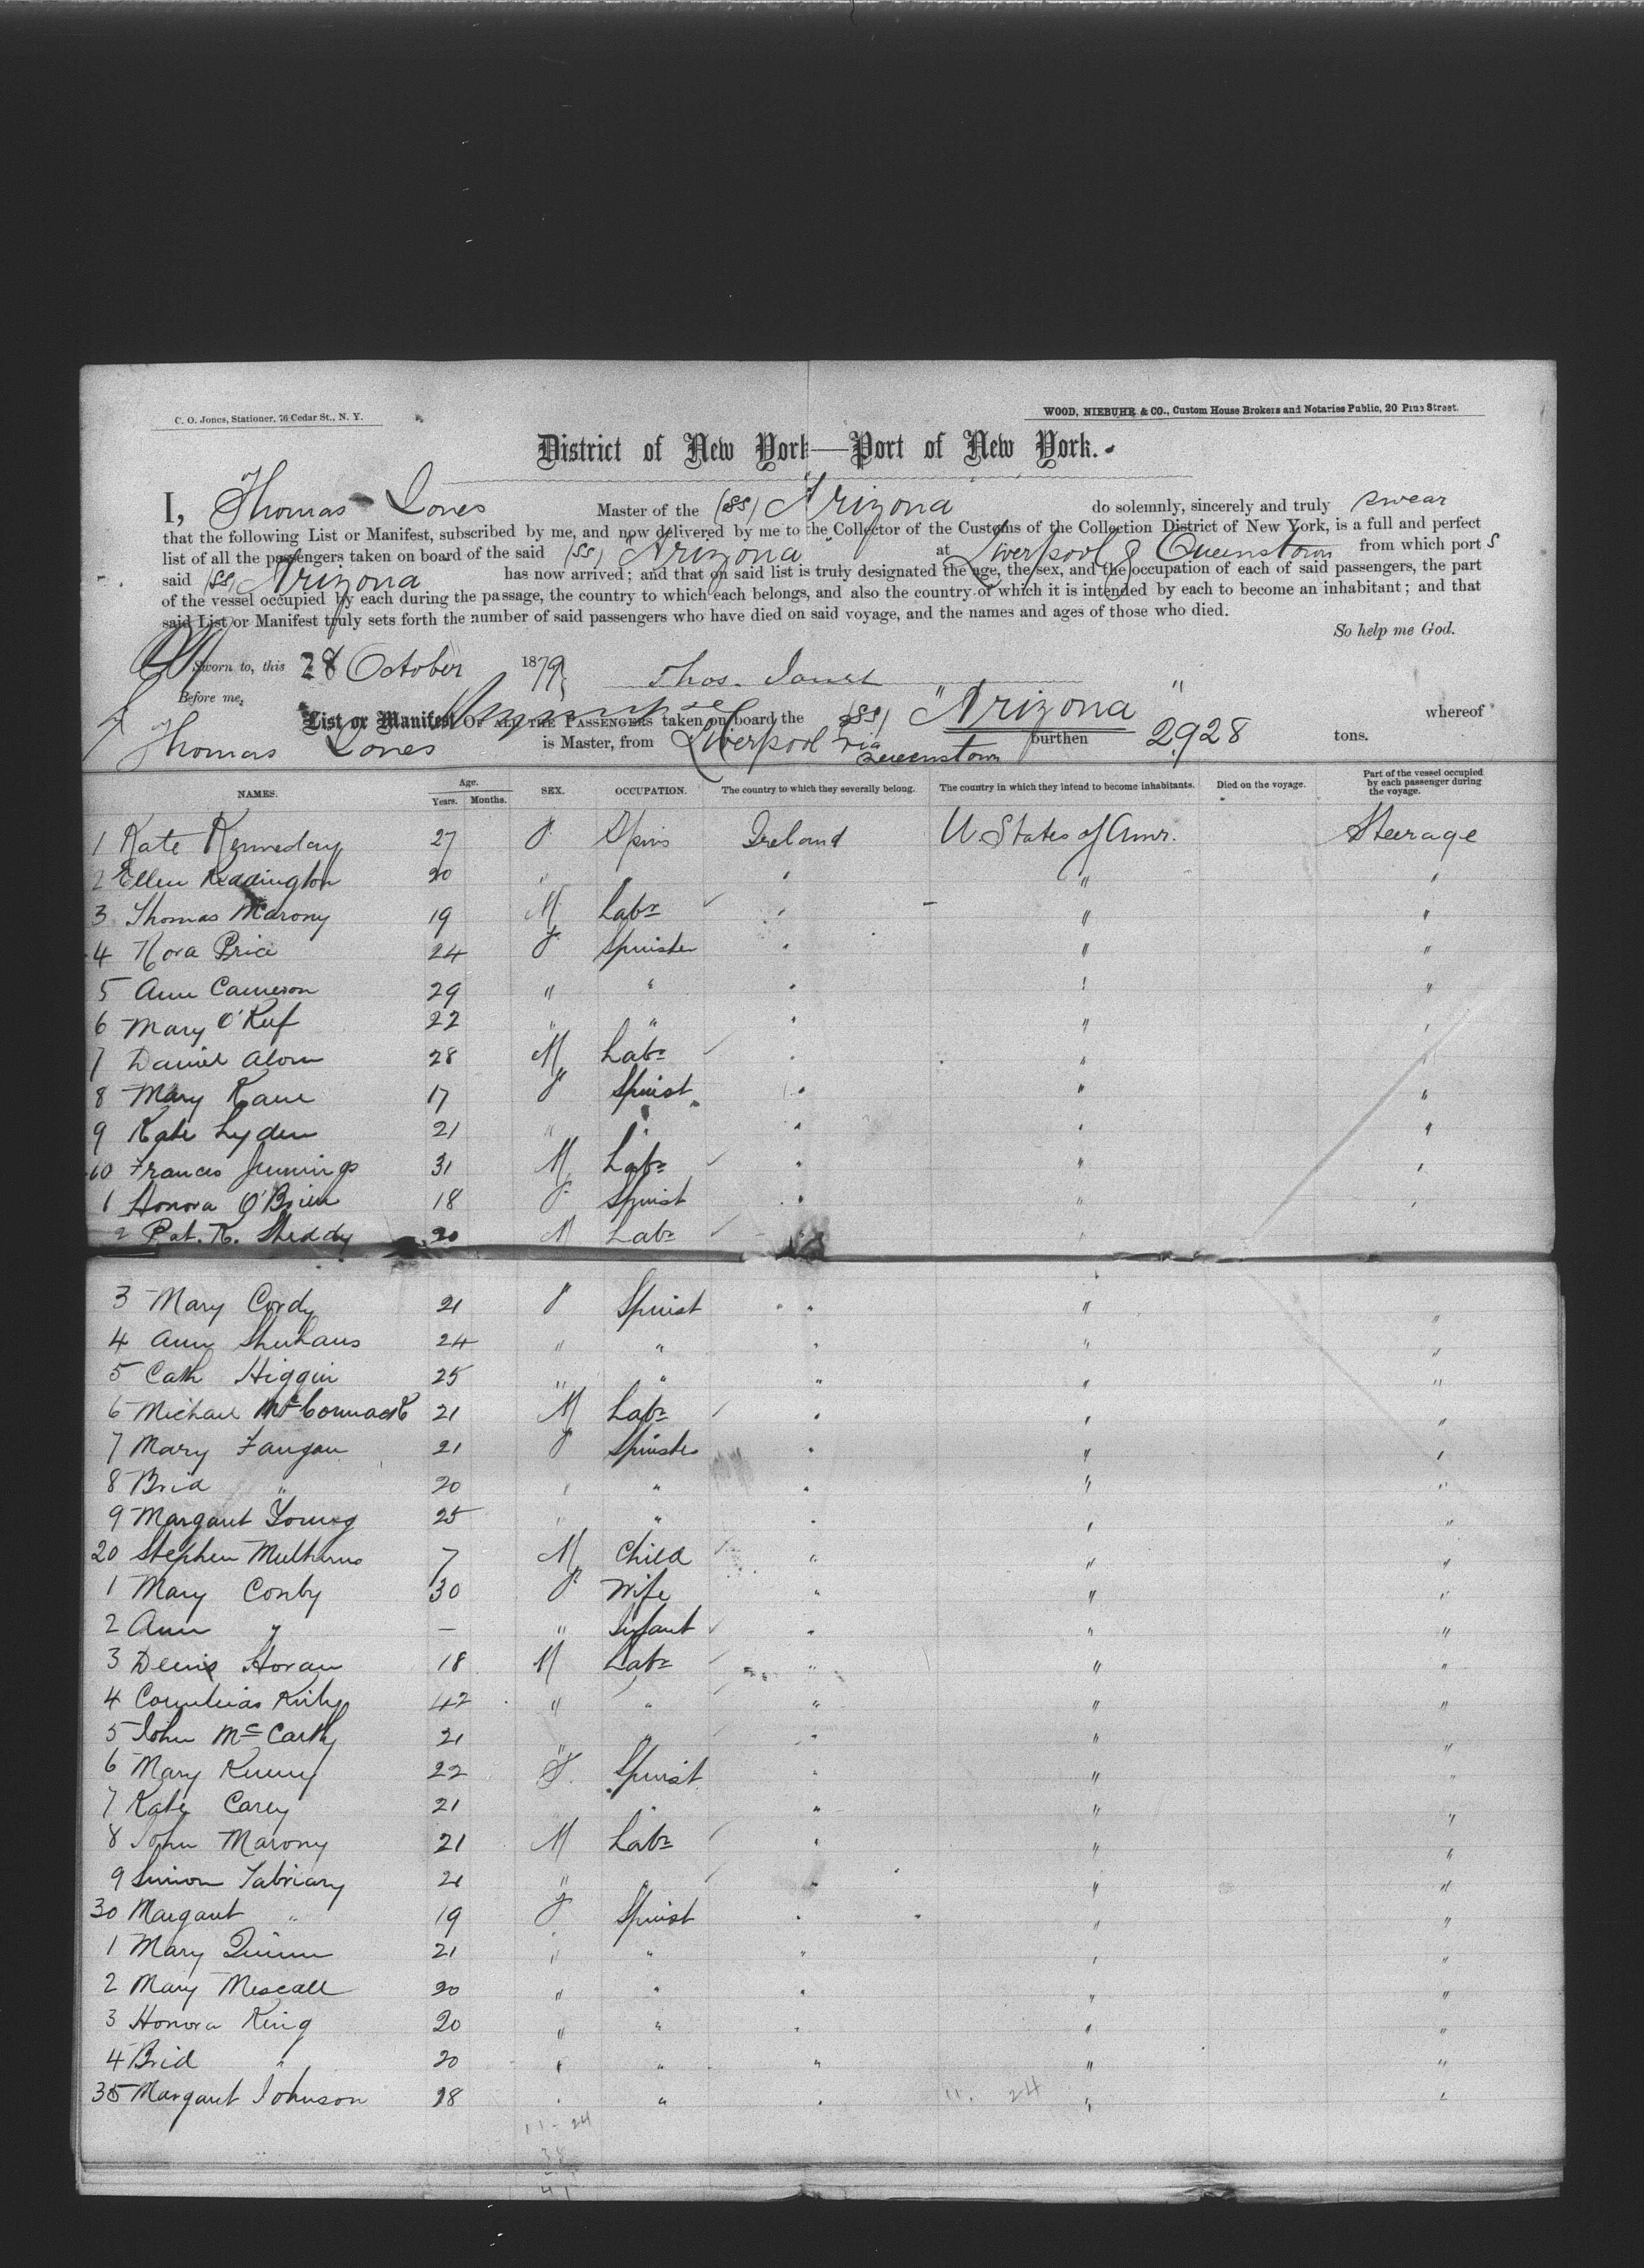 C. O. Jones, Stationer, 76 Cedar St., N. Y.
WOOD, NIEBUHR & CO., Custom House Brokers and Notaries Public, 20 Pine Street.
District of New York—Port of New York.
I, Thomas Jones Master of the (SS) Arizona do solemnly, sincerely and truly swear
that the following List or Manifest, subscribed by me, and now delivered by me to the Collector of the Customs of the Collection District of New York, is a full and perfect
list of all the passengers taken on board of the said (SS) Arizona at Liverpool & Queenstown from which port s
said (SS) Arizona has now arrived; and that on said list is truly designated the age, the sex, and the occupation of each of said passengers, the part
of the vessel occupied by each during the passage, the country to which each belongs, and also the country of which it is intended by each to become an inhabitant; and that
said List or Manifest truly sets forth the number of said passengers who have died on said voyage, and the names and ages of those who died.
So help me God.
Sworn to, this 28 October 1879 Thos. Jones
Before me,
List or Manifest OF ALL THE PASSENGERS taken on board the (SS) "Arizona" whereof
Thomas Jones is Master, from Liverpool via Queenstown burthen 2928 tons.
NAMES. Age. Years. Months. SEX. OCCUPATION. The country to which they severally belong. The country in which they intend to become inhabitants. Died on the voyage. Part of the vessel occupied by each passenger during the voyage.
1 Kate Kenneday 27 F Spins Ireland U. States of Amr. Steerage
2 Ellen Reddington 20 " " " " "
3 Thomas Marony 19 M Labr " " "
4 Nora Price 24 F Spinster " " "
5 Ann Cameron 29 " " " " "
6 Mary O'Keef 22 " " " " "
7 Daniel 28 M Labr " " "
8 Mary Kane 17 F Spinst " " "
9 Kate Lyden 21 " " " " "
10 Frances Jennings 31 M Labr " " "
1 Honora O'Brien 18 F Spinst " " "
2 Pat. K. Sheddy 20 M Labr " " "
3 Mary Cordy 21 F Spinst " " "
4 Ann 24 " " " " "
5 Cath Higgin 25 " " " " "
6 Michael McCormack 21 M Labr " " "
7 Mary Fangan 21 F Spinster " " "
8 Brid " 20 " " " " "
9 Margaret Young 25 " " " " "
20 Stephen 7 M Child " " "
1 Mary Conby 30 F Wife " " "
2 Ann " — " Infant " " "
3 Denis Horan 18 M Labr " " "
4 Cornelius Kirby 42 " " " " "
5 John McCarthy 21 " " " " "
6 Mary Kenny 22 F. Spinst " " "
7 Kate Carey 21 " " " "
8 John Marony 21 M Labr " " "
9 Simon Tabriary 21 " " " " "
30 Margaret " 19 F Spinst " " "
1 Mary Quinn 21 " " " " "
2 Mary Mescall 20 " " " " "
3 Honora King 20 " " " " "
4 Brid " 20 " " " " "
35 Margaret Johnson 28 " " " " "
11. 24
11-24